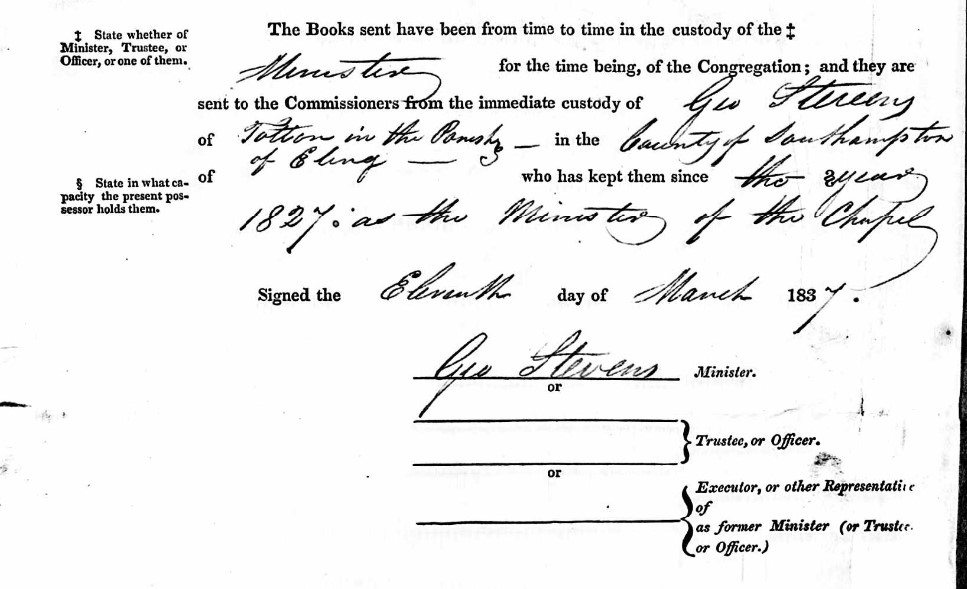 ‡ State whether of
Minister, Trustee, or
Officer, or one of them.
The Books sent have been from time to time in the custody of the ‡
Minister for the time being, of the Congregation; and they are
sent to the Commissioners from the immediate custody of Geo Stevens
of Totton in the Parish — in the County of Southampton
of Eling —
§ State in what ca-
pacity the present pos-
sessor holds them.
of who has kept them since the year
1827: as the Minister of the Chapel
Signed the Eleventh day of March 1837.
Geo Stevens Minister.
or
Trustee, or Officer.
or
Executor, or other Representative
of
as former Minister (or Trustee
or Officer.)